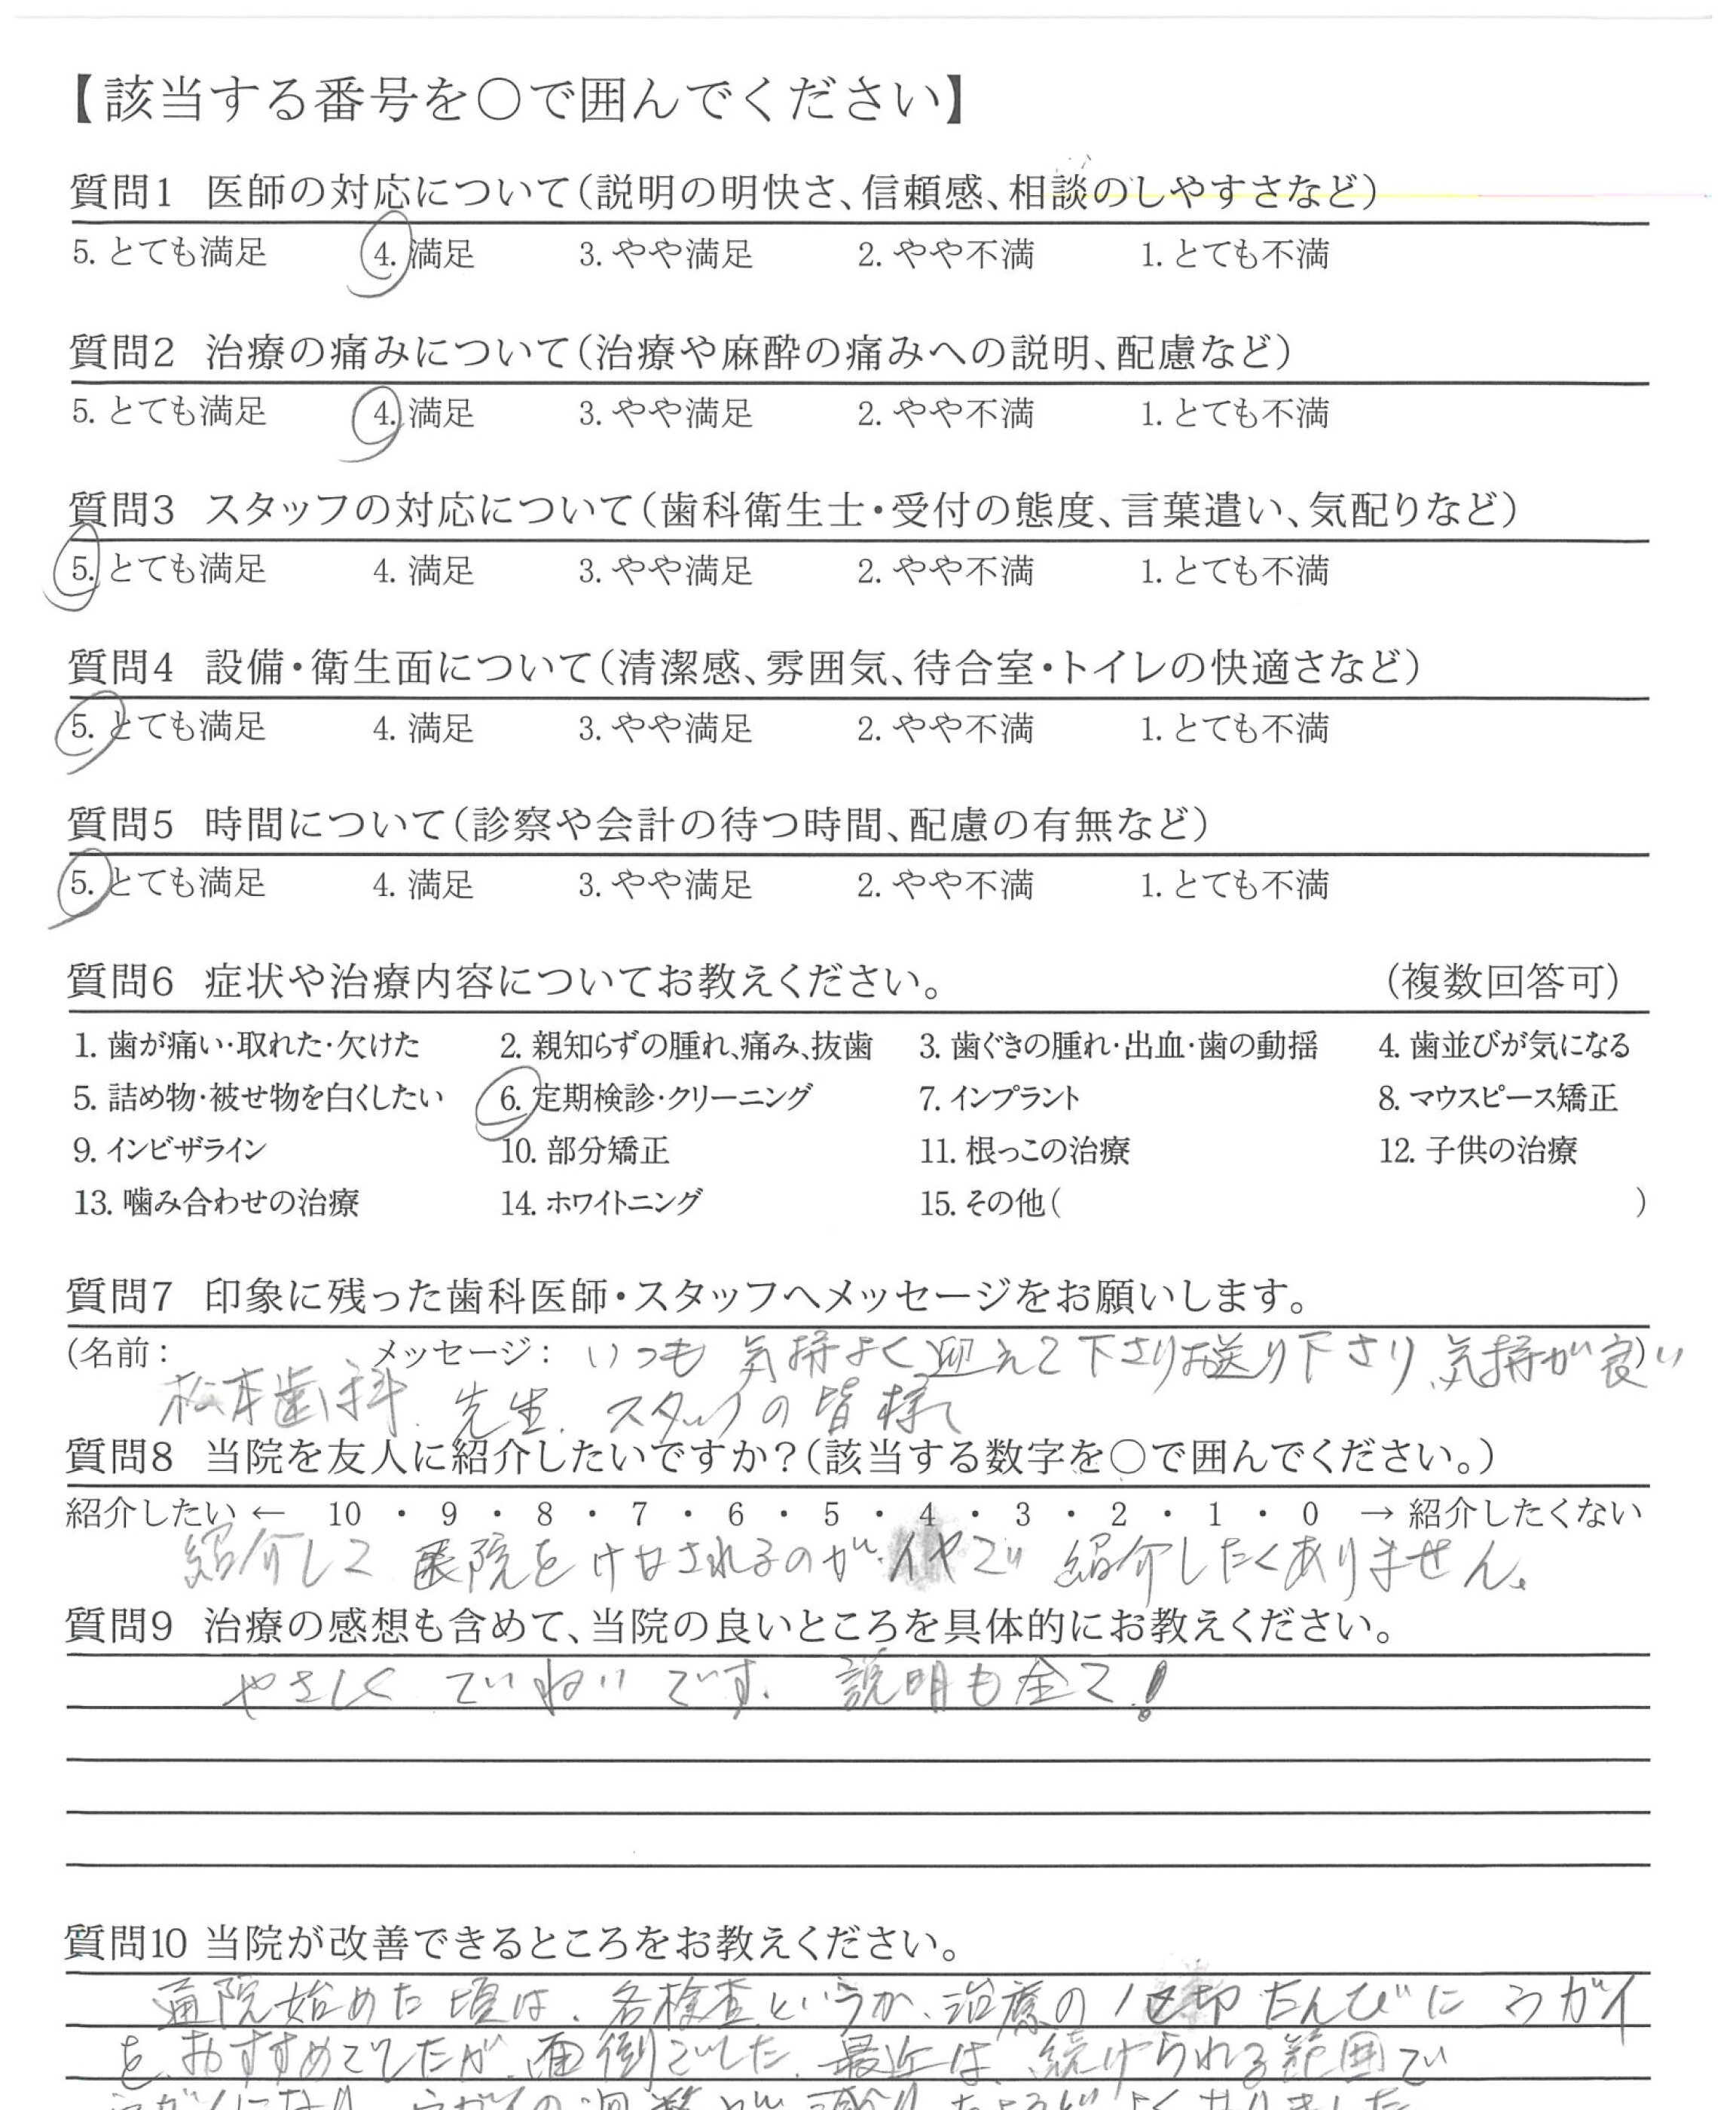 【該当する番号を○で囲んでください】
質問1 医師の対応について(説明の明快さ、信頼感、相談のしやすさなど)
5. とても満足 4. 満足 3. やや満足 2. やや不満 1. とても不満
質問2 治療の痛みについて(治療や麻酔の痛みへの説明、配慮など)
5. とても満足 4. 満足 3. やや満足 2. やや不満 1. とても不満
質問3 スタッフの対応について(歯科衛生士・受付の態度、言葉遣い、気配りなど)
5. とても満足 4. 満足 3. やや満足 2. やや不満 1. とても不満
質問4 設備・衛生面について(清潔感、雰囲気、待合室・トイレの快適さなど)
5. とても満足 4. 満足 3. やや満足 2. やや不満 1. とても不満
質問5 時間について(診察や会計の待つ時間、配慮の有無など)
5. とても満足 4. 満足 3. やや満足 2. やや不満 1. とても不満
質問6 症状や治療内容についてお教えください。 (複数回答可)
1. 歯が痛い・取れた・欠けた 2. 親知らずの腫れ、痛み、抜歯 3. 歯ぐきの腫れ・出血・歯の動揺 4. 歯並びが気になる
5. 詰め物・被せ物を白くしたい 6. 定期検診・クリーニング 7. インプラント 8. マウスピース矯正
9. インビザライン 10. 部分矯正 11. 根っこの治療 12. 子供の治療
13. 噛み合わせの治療 14. ホワイトニング 15. その他( )
質問7 印象に残った歯科医師・スタッフへメッセージをお願いします。
(名前: メッセージ: いつも気持よく迎えて下さりお送り下さり、気持が良い)
松本歯科 先生、スタッフの皆様
質問8 当院を友人に紹介したいですか?(該当する数字を○で囲んでください。)
紹介したい ← 10 ・ 9 ・ 8 ・ 7 ・ 6 ・ 5 ・ 4 ・ 3 ・ 2 ・ 1 ・ 0 → 紹介したくない
紹介して医院をけなされるのがイヤで 紹介したくありません。
質問9 治療の感想も含めて、当院の良いところを具体的にお教えください。
やさしく ていねいです。 説明も全て!
質問10 当院が改善できるところをお教えください。
通院始めた頃は、各検査というか、治療の1区切たんびにウガイ
をおすすめでしたが、面倒でした。最近は、続けられる範囲で